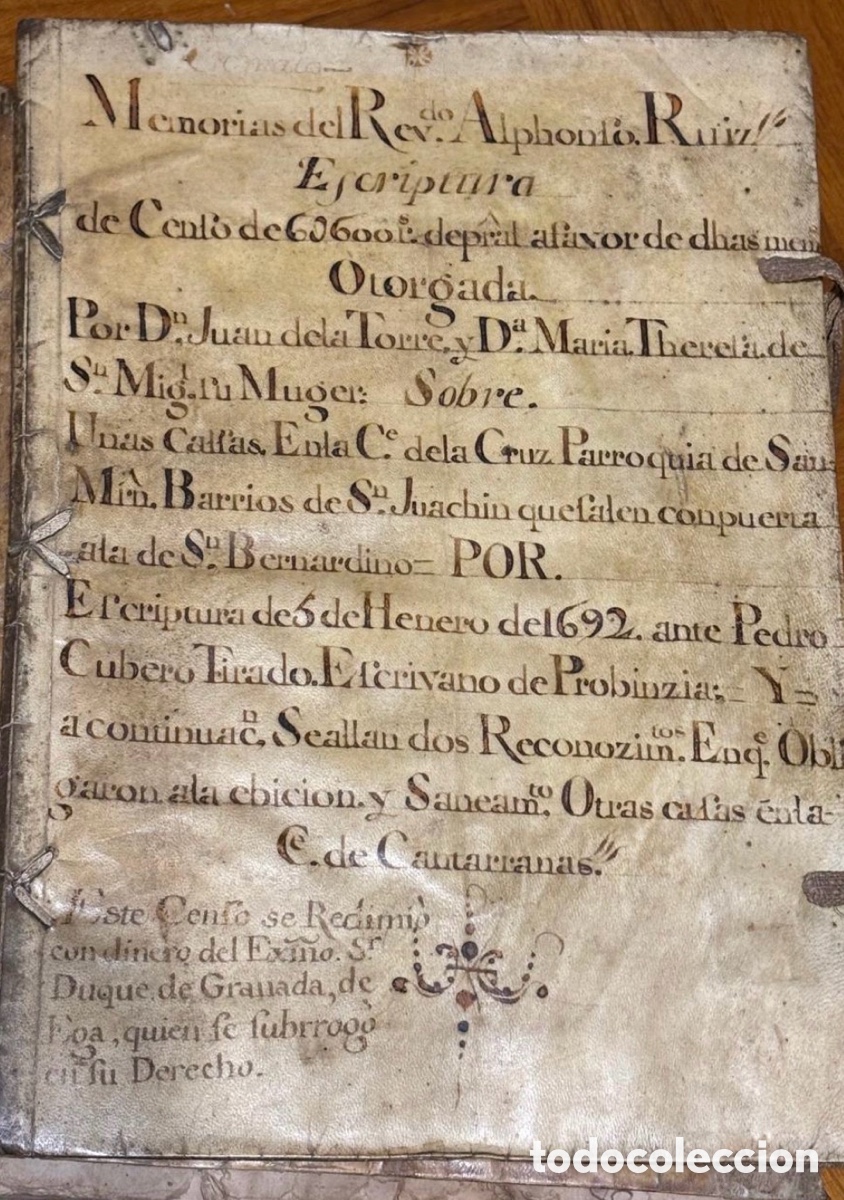 Memorias del Rev.do Alphonso. Ruiz
Escriptura
de Censo de 6∂600 r.s de pral a favor de dhas mem
Otorgada.
Por D.n Juan de la Torre, y D.a Maria. Theresa. de
S.n Mig.l su Muger: Sobre.
Unas Cassas. En la C.e de la Cruz Parroquia de San
Mrn. Barrios de S.n Juachin que salen con puerta
ala de S.n Bernardino = POR.
Escriptura de 5 de Henero de 1692. ante Pedro
Cubero Tirado. Escrivano de Probinzia: = Y =
a continuac.n, Se allan dos Reconozim.tos. En q.e Obli
garon ala ebicion. y Saneam.to, Otras casas en la
C.e de Cantarranas.
Este Censo se Redimiò
con dinero del Exmo. S.r
Duque de Granada, de
Ega, quien se subrrogò
en su Derecho.
todocoleccion